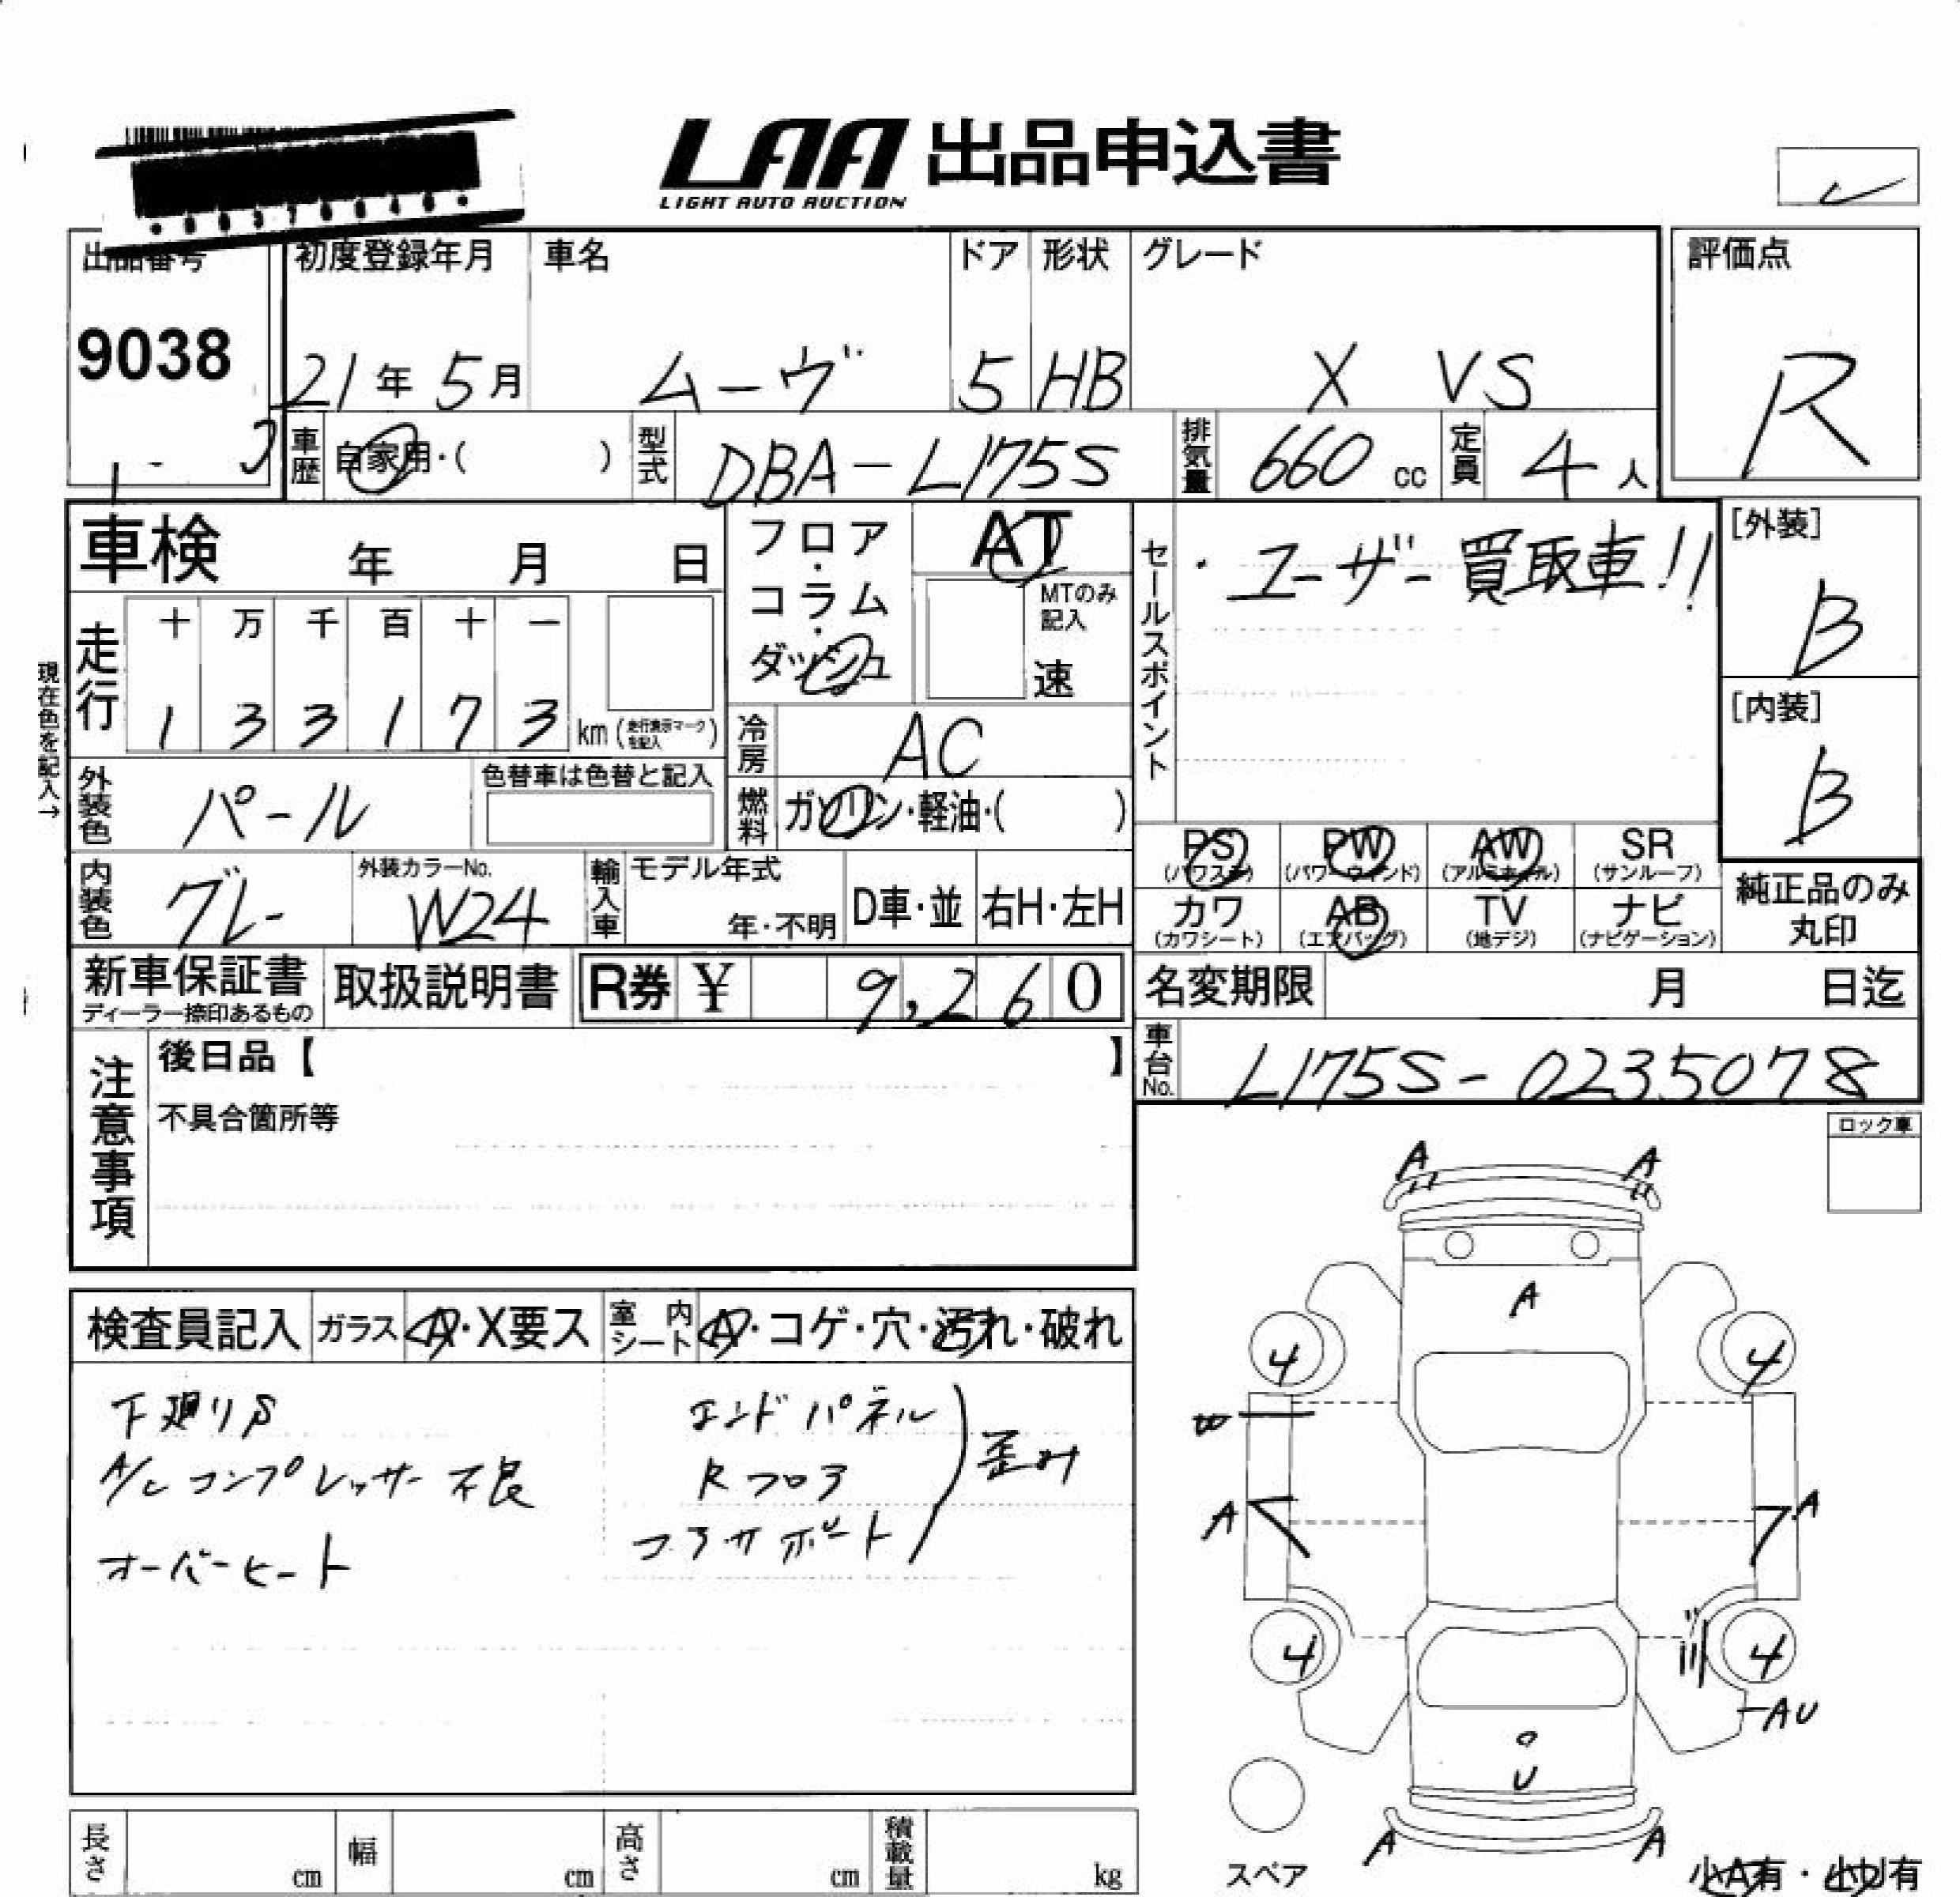 LAA 出品申込書
LIGHT AUTO AUCTION
出品番号
9038
初度登録年月
21年5月
車名
ムーヴ
ドア
5
形状
HB
グレード
X VS
評価点
R
車歴 自家用・( )
型式 DBA-L175S
排気量 660 cc
定員 4人
車検 年 月 日
走行
十 万 千 百 十 一
1 3 3 1 7 3 km (走行表示マークを記入)
現在色を記入→
外装色 パール
色替車は色替と記入
内装色 グレー
外装カラーNo.
W24
輸入車
モデル年式
年・不明
D車・並
右H・左H
フロア・コラム・ダッシュ
AT
MTのみ記入
速
冷房 AC
燃料 ガソリン・軽油・( )
セールスポイント
・ユーザー買取車!!
[外装]
B
[内装]
B
PS (パワステ)
PW (パワーウィンド)
AW (アルミホイル)
SR (サンルーフ)
カワ (カワシート)
AB (エアバッグ)
TV (地デジ)
ナビ (ナビゲーション)
純正品のみ丸印
新車保証書
ディーラー捺印あるもの
取扱説明書
R券 ¥ 9,260
名変期限 月 日迄
車台No. L175S-0235078
注意事項
後日品【 】
不具合箇所等
ロック車
検査員記入
ガラス A・X要ス
室内シート A・コゲ・穴・汚れ・破れ
下廻りS
A/Cコンプレッサー不良
オーバーヒート
エンドパネル
Rフロア
コアサポート
歪み
A A
A
4 4
A A
4 4
AU
U
A A
スペア
小A有・小U有
長さ cm
幅 cm
高さ cm
積載量 kg